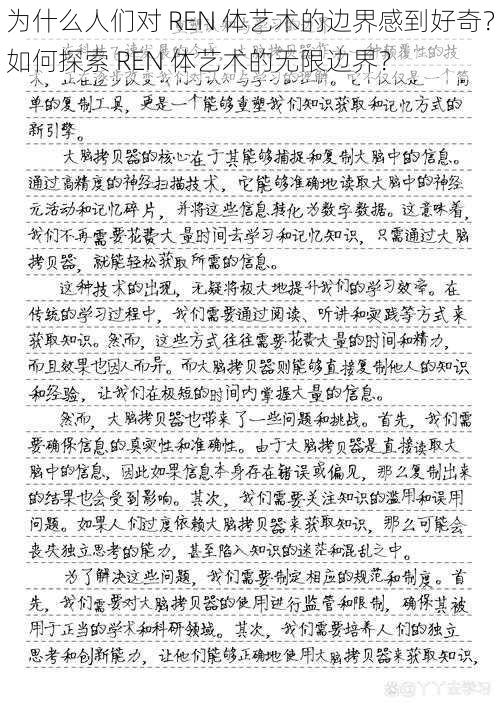 为什么人们对 REN 体艺术的边界感到好奇？
如何探索 REN 体艺术的无限边界？
术，正在逐步改变我们对认知与学习的理解。它不仅仅是一个简
单的复制工具，更是一个能够重塑我们知识获取和记忆方式的
新引擎。
大脑拷贝器的核心在于其能够捕捉和复制大脑中的信息。
通过高精度的神经扫描技术，它能够准确地读取大脑中的神经
元活动和记忆碎片，并将这些信息转化为数字数据。这意味着，
我们不再需要花费大量时间去学习和记忆知识，只需通过大脑
拷贝器，就能轻松获取所需的信息。
这种技术的出现，无疑将极大地提升我们的学习效率。在
传统的学习过程中，我们需要通过阅读、听讲和实践等方式来
获取知识。然而，这些方式往往需要花费大量的时间和精力，
而且效果也因人而异。而大脑拷贝器则能够直接复制他人的知识
和经验，让我们在极短的时间内掌握大量的信息。
然而，大脑拷贝器也带来了一些问题和挑战。首先，我们需
要确保信息的真实性和准确性。由于大脑拷贝器是直接读取大
脑中的信息，因此如果信息本身存在错误或偏见，那么复制出来
的结果也会受到影响。其次，我们需要关注知识的滥用和误用
问题。如果人们过度依赖大脑拷贝器来获取知识，那么可能会
丧失独立思考的能力，甚至陷入知识的迷茫和混乱之中。
为了解决这些问题，我们需要制定相应的规范和制度。首
先，我们需要对大脑拷贝器的使用进行监管和限制，确保其被
用于正当的学术和科研领域。其次，我们需要培养人们的独立
思考和创新能力，让他们能够正确地使用大脑拷贝器来获取知识，
@丫丫去学习